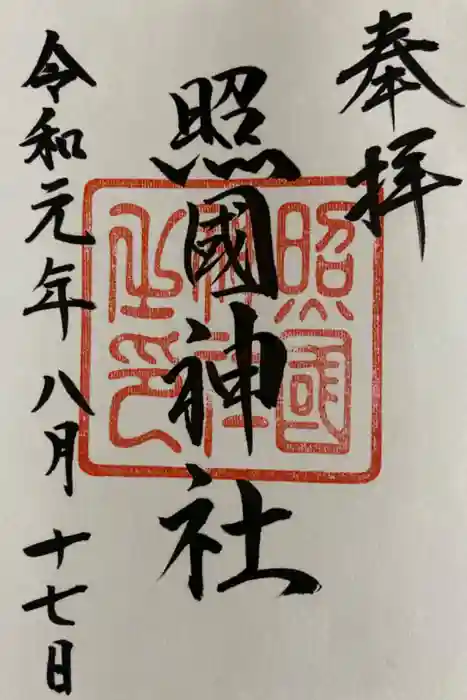 奉拝
照國神社
令和元年八月十七日
照國神社之印